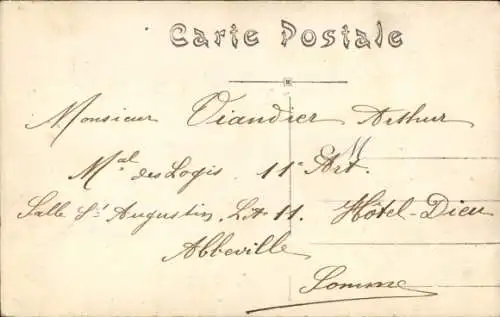 Carte Postale
Monsieur Viandier Arthur
Mal des Logis 11e Art.
Salle St Augustin, Lit 11. Hôtel-Dieu
Abbeville
Somme